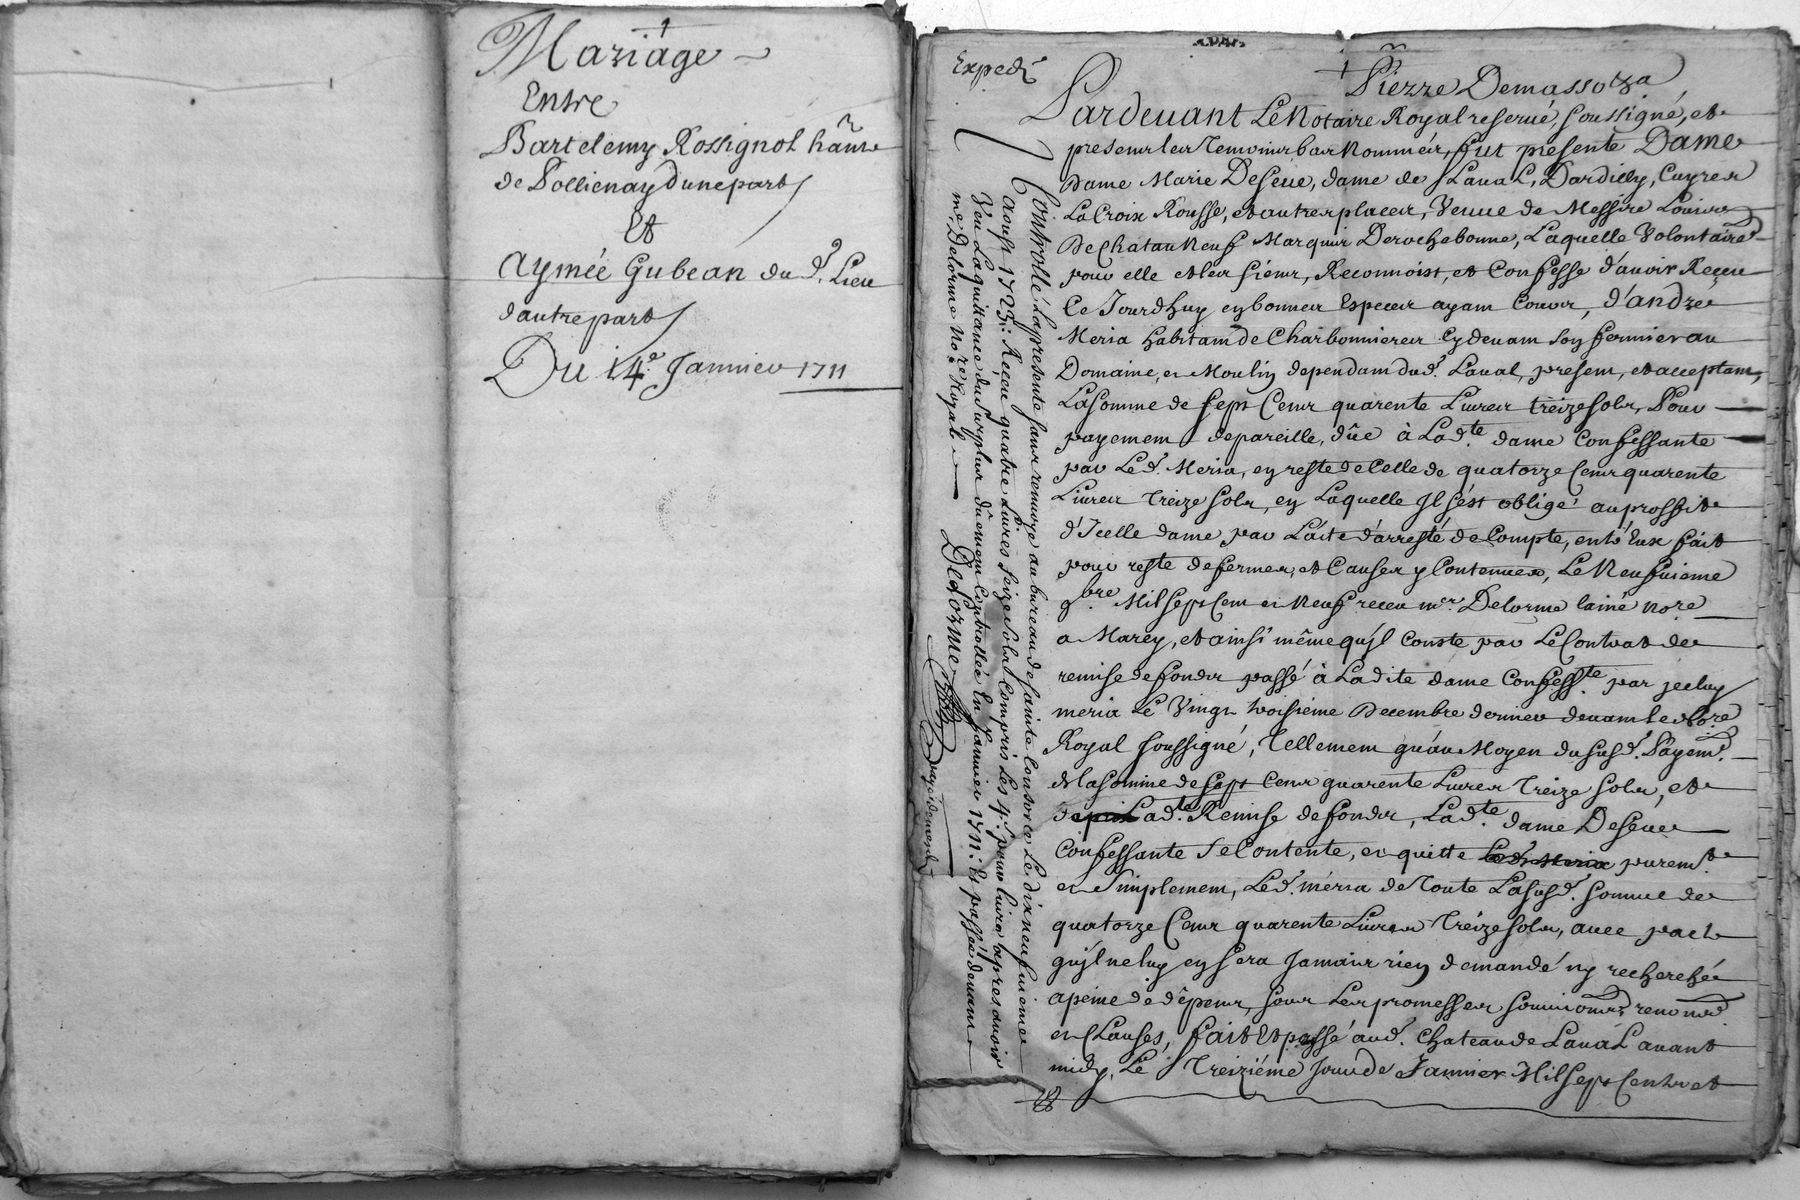 Mariage
Entre
Bartelemy Rossignol hãnt
de Pollienay dunepart
Et
Aymée Gubean du d. Lieu
dautrepart
Du 14e Janvier 1711
Expedé
Pierre Demasso
Pardevant Le Notaire Royal reservé, soussigné, et
presents les Temoins bas Nommés, fut presente Dame
Dame Marie Deseve, dame de Laval, Dardilly, Cuyres
La Croix Rousse, et autres places, Veuve de Messire Louis
De Chatau Neuf Marquis Derochebonne, Laquelle Volontaire
pour elle et les siens, Reconnoist, et Confesse d'avoir Receu
Ce Jourdhuy en bonnes Especes ayant Cours, d'andre
Meria habitant de Charbonnieres Cydevant son fermier au
Domaine, et Moulin dependant dud. Laval, present, et acceptant,
La somme de sept Cent quarente Livres treize sols, Pour
payement depareille, dûe à Lad.te dame Confessante
par Led. Meria, en reste de Celle de quatorze Cent quarente
Livres Treize sols, en Laquelle Il s'ést obligé auproffit
d'Icelle dame par L'acte d'arresté de Compte, entr'Eux fait
pour reste defermes, et Causes y Contenues, Le Neufvieme
9bre Mil Sept Cent et Neuf receu mer Delorme lainé nore
a Marcy, et ainsi même qu'Il Conste par Le Contrat de
remise defonds passé à Ladite dame Confess.te par jceluy
meria Le Vingt troisieme Decembre dernier devant le Nore
Royal soussigné, Tellement qu'au Moyen du susd. Payemt.
de la somme de sept Cent quarente Livres Treize sols, et
de Lad.te Remise defonds, Lad.te dame Deseve
Confessante se Contente, et quitte purem.t
et simplement, Led. méria de Toute La susd. somme de
quatorze Cent quarente Livres Tréize sols, avec pacte
qu'Il ne luy en sera Jamais rien demandé ny recherché
apeine de dêpens, sous Les promesses soumions, renond.
et Clauses, fait Et passé aud. Chateau de Laval avant
midy, Le Treiziéme Jour de Janvier Mil Sept Cents et
Controllé La presente sans renvoye au bureau de sainte Consorce Le dixneufvieme
aoust 1723. Receu quatre Livres seize sols Compris Les 4s. pour livre apres avoir
Veu La quittance du surplus dûement Controllée En Janvier 1711: Et passée devant
me. Delorme Nore Royal
Delorme